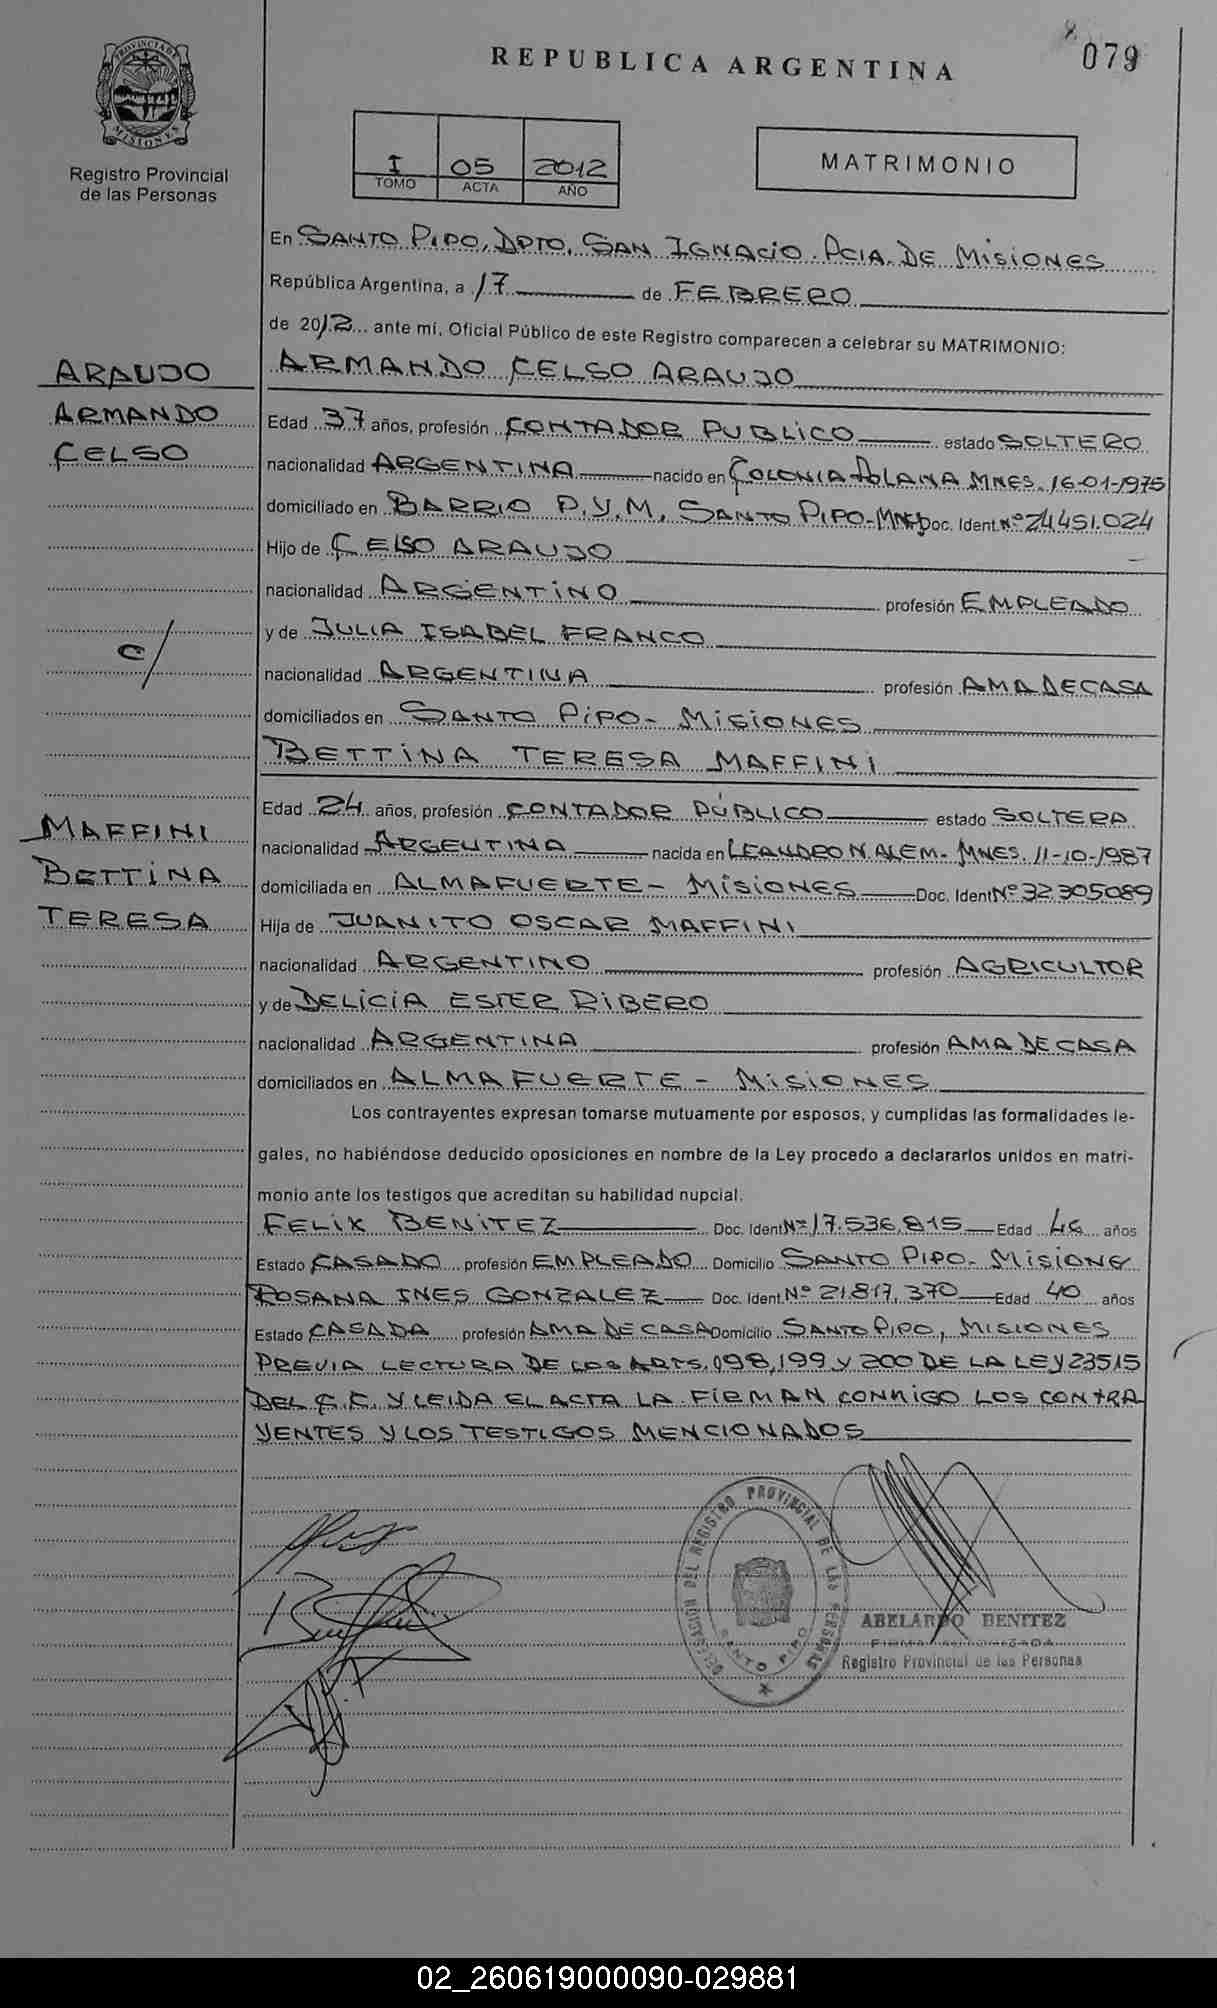 079
REPUBLICA ARGENTINA
PROVINCIA DE
MISIONES
Registro Provincial
de las Personas
I 05 2012
TOMO ACTA AÑO
MATRIMONIO
En SANTO PIPO, DPTO, SAN IGNACIO. PCIA. DE MISIONES
República Argentina, a 17 de FEBRERO
de 2012 ante mí, Oficial Público de este Registro comparecen a celebrar su MATRIMONIO:
ARAUJO
ARMANDO
CELSO
ARMANDO CELSO ARAUJO
Edad 37 años, profesión CONTADOR PUBLICO estado SOLTERO
nacionalidad ARGENTINA nacido en COLONIA POLANA MNES. 16-01-1975
domiciliado en BARRIO P.Y.M, SANTO PIPO-MNES Doc. Ident. Nº 24451.024
Hijo de CELSO ARAUJO
nacionalidad ARGENTINO profesión EMPLEADO
y de JULIA ISABEL FRANCO
c/
nacionalidad ARGENTINA profesión AMA DE CASA
domiciliados en SANTO PIPO- MISIONES
BETTINA TERESA MAFFINI
MAFFINI
BETTINA
TERESA
Edad 24 años, profesión CONTADOR PÚBLICO estado SOLTERA
nacionalidad ARGENTINA nacida en LEANDRO N. ALEM- MNES. 11-10-1987
domiciliada en ALMAFUERTE- MISIONES Doc. Ident Nº 32305089
Hija de JUANITO OSCAR MAFFINI
nacionalidad ARGENTINO profesión AGRICULTOR
y de DELICIA ESTER RIBERO
nacionalidad ARGENTINA profesión AMA DE CASA
domiciliados en ALMAFUERTE- MISIONES
Los contrayentes expresan tomarse mutuamente por esposos, y cumplidas las formalidades le-
gales, no habiéndose deducido oposiciones en nombre de la Ley procedo a declararlos unidos en matri-
monio ante los testigos que acreditan su habilidad nupcial.
FELIX BENITEZ Doc. Ident Nº 17.536.815 Edad años
Estado CASADO profesión EMPLEADO Domicilio SANTO PIPO- MISIONE
ROSANA INES GONZALEZ Doc. Ident. Nº 21.817.370 Edad 40 años
Estado CASADA profesión AMA DE CASA Domicilio SANTO PIPO, MISIONES
PREVIA LECTURA DE LOS ARTS. 198, 199 Y 200 DE LA LEY 23515
DEL C.C. Y LEIDA EL ACTA LA FIRMAN CONMIGO LOS CONTRA
YENTES Y LOS TESTIGOS MENCIONADOS
DELEGACIÓN DEL REGISTRO PROVINCIAL DE LAS PERSONAS
SANTO PIPO
ABELARDO BENITEZ
FIRMA AUTORIZADA
Registro Provincial de las Personas
02_260619000090-029881